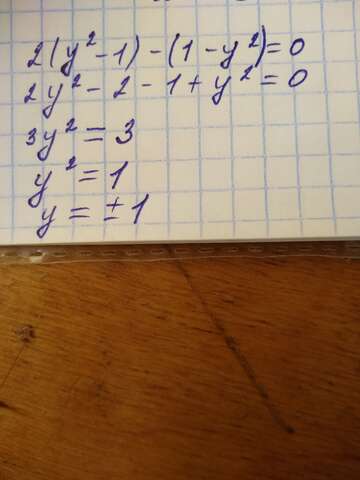 2(y² - 1) - (1 - y²) = 0
2y² - 2 - 1 + y² = 0
3y² = 3
y² = 1
y = ± 1